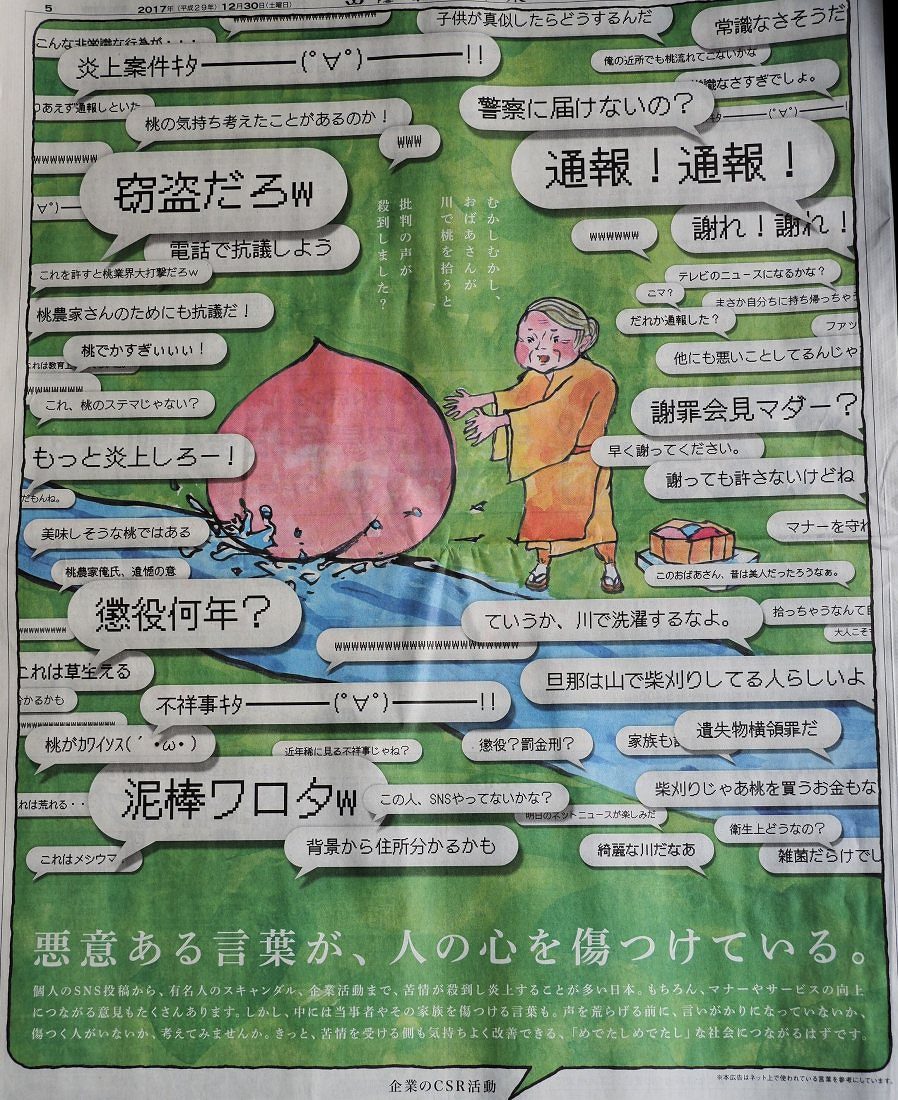 5
2017年(平成29年)12月30日(土曜日)
子供が真似したらどうするんだ
常識なさそうだ
こんな非常識な行為が・・・
炎上案件ｷﾀ━━━(ﾟ∀ﾟ)━━━!!
俺の近所でも桃流れてこないかな
常識なさすぎでしょ。
りあえず通報しといた
桃の気持ち考えたことがあるのか！
警察に届けないの？
www
wwwwwww
窃盗だろw
通報！通報！
∀ﾟ)
電話で抗議しよう
wwwwww
謝れ！謝れ！
これを許すと桃業界大打撃だろw
テレビのニュースになるかな？
こマ？
まさか自分ちに持ち帰っちゃ
桃農家さんのためにも抗議だ！
だれか通報した？
ファッ
桃でかすぎぃぃぃ！
他にも悪いことしてるんじゃ
wwwwwww
これ、桃のステマじゃない？
謝罪会見マダー？
もっと炎上しろー！
早く謝ってください。
謝っても許さないけどね
だもんね。
美味しそうな桃ではある
マナーを守れ
桃農家俺氏、遺憾の意
このおばあさん、昔は美人だったろうなぁ。
懲役何年？
ていうか、川で洗濯するなよ。
拾っちゃうなんて
大人こそ
wwwwwwwwwwwwwwwwwww
これは草生える
旦那は山で柴刈りしてる人らしいよ
かるかも
不祥事ｷﾀ━━━(ﾟ∀ﾟ)━━━!!
桃がｶﾜｲｿｽ(´・ω・)
近年稀に見る不祥事じゃね？
懲役？罰金刑？
家族も
遺失物横領罪だ
れは荒れる・・
泥棒ワロタw
この人、SNSやってないかな？
柴刈りじゃあ桃を買うお金もな
明日のネットニュースが楽しみだ
衛生上どうなの？
これはメシウマ
背景から住所分かるかも
綺麗な川だなあ
雑菌だらけでし
むかしむかし、
おばあさんが
川で桃を拾うと
批判の声が
殺到しました？
悪意ある言葉が、人の心を傷つけている。
個人のSNS投稿から、有名人のスキャンダル、企業活動まで、苦情が殺到し炎上することが多い日本。もちろん、マナーやサービスの向上
につながる意見もたくさんあります。しかし、中には当事者やその家族を傷つける言葉も。声を荒らげる前に、言いがかりになっていないか、
傷つく人がいないか、考えてみませんか。きっと、苦情を受ける側も気持ちよく改善できる、「めでたしめでたし」な社会につながるはずです。
企業のCSR活動
※本広告はネット上で使われている言葉を参考にしています。